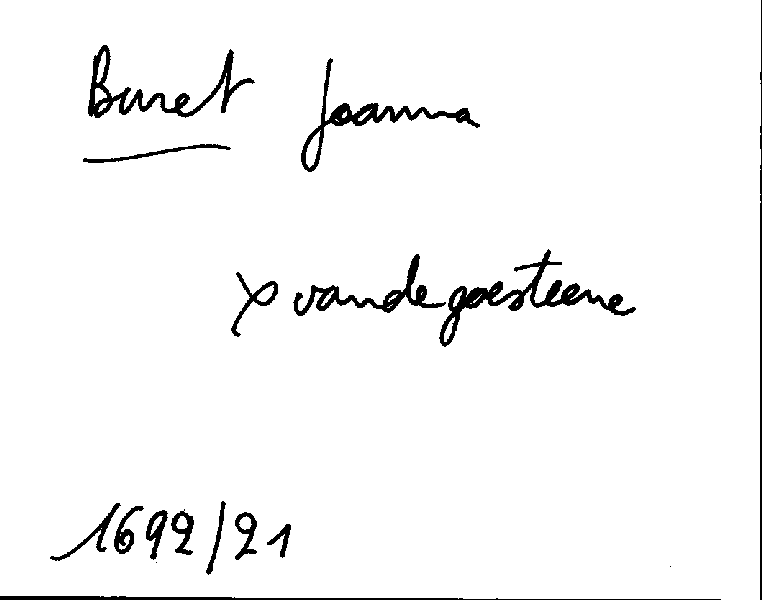 Buret Joanna
x vandegoesteene
1692/21